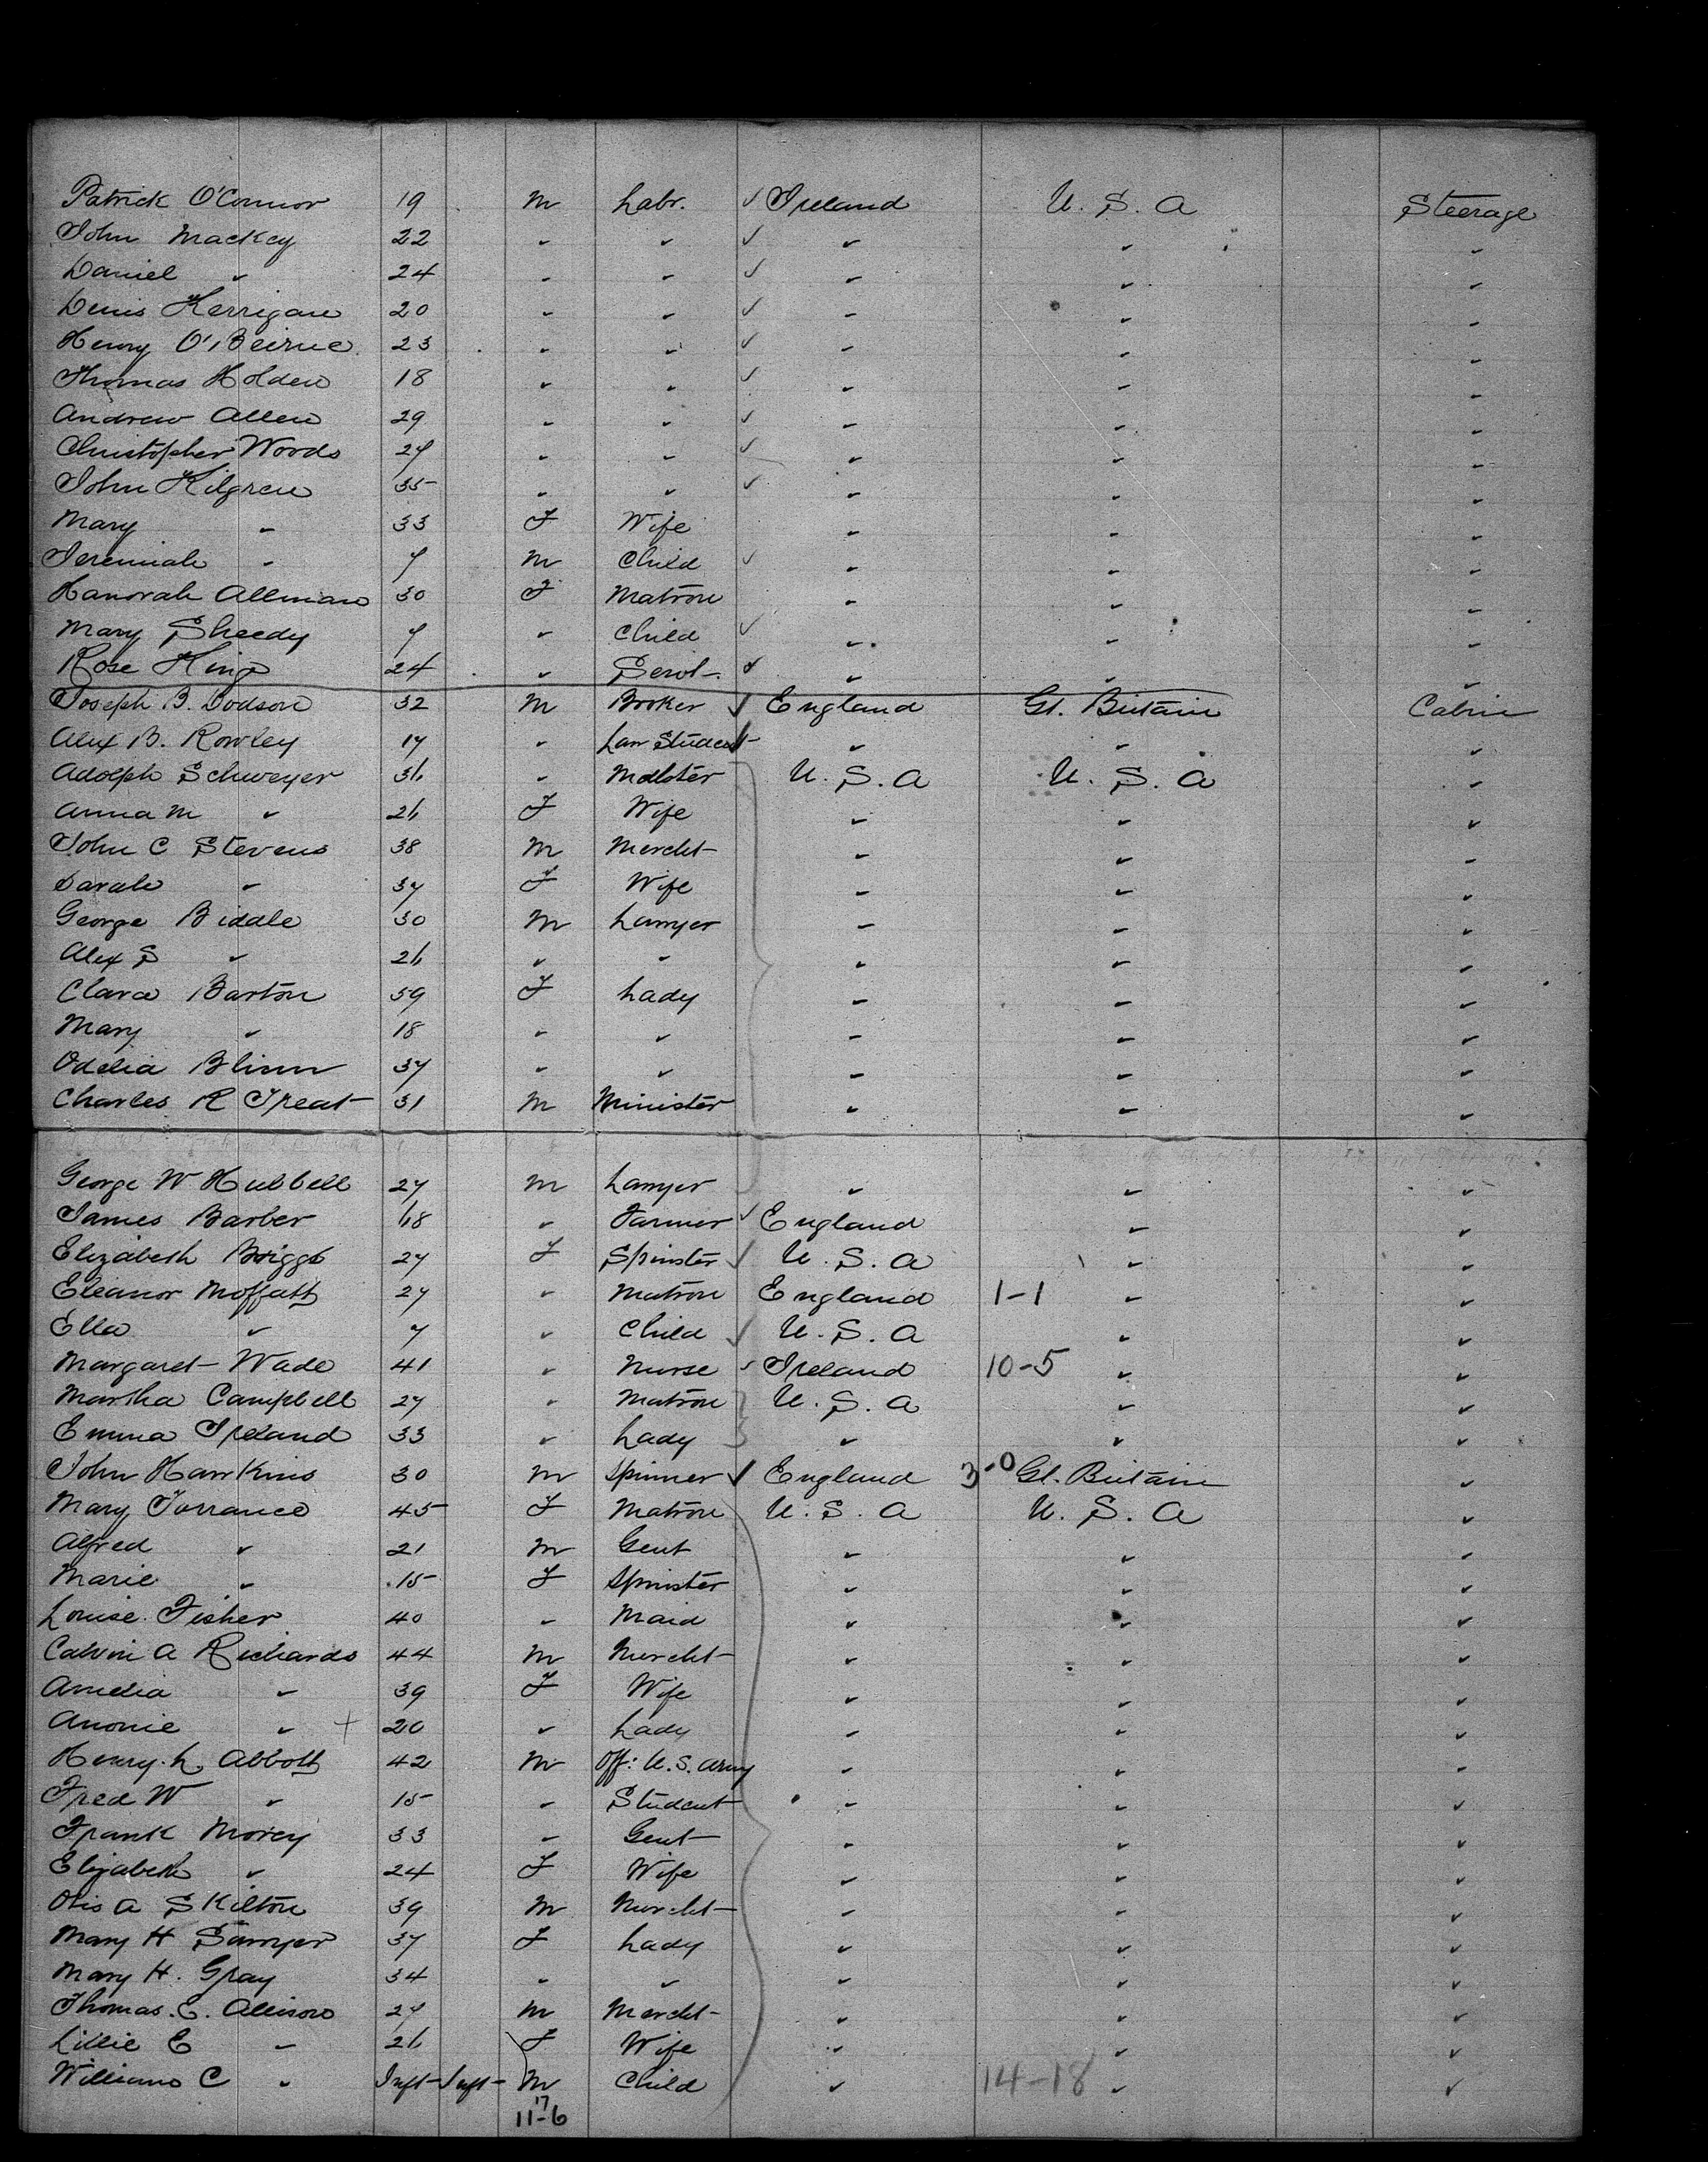 Patrick O'Connor 19 M Labr. ✓ Ireland U. S. A Steerage
John Mackey 22 " " ✓ " " "
Daniel " 24 " " ✓ " " "
Denis Kerrigan 20 " " ✓ " " "
Henry O'Beirne 23 " " ✓ " " "
Thomas Holden 18 " " ✓ " " "
Andrew Allen 29 " " ✓ " " "
Christopher Woods 27 " " ✓ " " "
John Kilgren 35 " " ✓ " " "
Mary " 33 F Wife " " "
Jeremiah " 7 M Child ✓ " " "
Hanorah Allman 30 F Matron " " "
Mary Sheedy 7 " Child ✓ " " "
Rose King 24 " Servt. ✓ " " "
Joseph B. Dodson 32 M Broker ✓ England Gt. Britain Cabin
Alex B. Rowley 17 " Law Student " " "
Adolph Schweyer 36 " Malster U. S. A U. S. A "
Anna M " 26 F Wife " " "
John C Stevens 38 M Mercht " " "
Sarah " 37 F Wife " " "
George Biddle 30 M Lawyer " " "
Alex S " 26 " " " " "
Clara Barton 59 F Lady " " "
Mary " 18 " " " " "
Odelia Blinn 37 " " " " "
Charles R Treat 31 M Minister " " "
George W Hubbell 27 M Lawyer " " "
James Barber 68 " Farmer ✓ England " "
Elizabeth Briggs 27 F Spinster ✓ U. S. A " "
Eleanor Moffatt 27 " Matron England 1-1 " "
Ella " 7 " Child ✓ U. S. A " "
Margaret Wade 41 " Nurse ✓ Ireland 10-5 " "
Martha Campbell 27 " Matron U. S. A " "
Emma Ireland 33 " Lady " " "
John Hawkins 30 M Spinner ✓ England 3-0 Gt. Britain "
Mary Torrance 45 F Matron U. S. A U. S. A "
Alfred " 21 M Gent " " "
Marie " 15 F Spinster " " "
Louise Fisher 40 " Maid " " "
Calvin A Richards 44 M Mercht " " "
Amelia " 39 F Wife " " "
Anonie " + 20 " Lady " " "
Henry L Abbott 42 M Off: U. S. Army " " "
Fred W " 15 " Student " " "
Frank Morey 33 " Gent " " "
Elizabeth " 24 F Wife " " "
Otis A Skilton 39 M Mercht " " "
Mary H Sawyer 37 F Lady " " "
Mary H. Gray 34 " " " " "
Thomas. E. Allison 27 M Mercht " " "
Lillie E " 26 F Wife " " "
William C " Inft Inft M Child " 14-18 " "
17
11-6